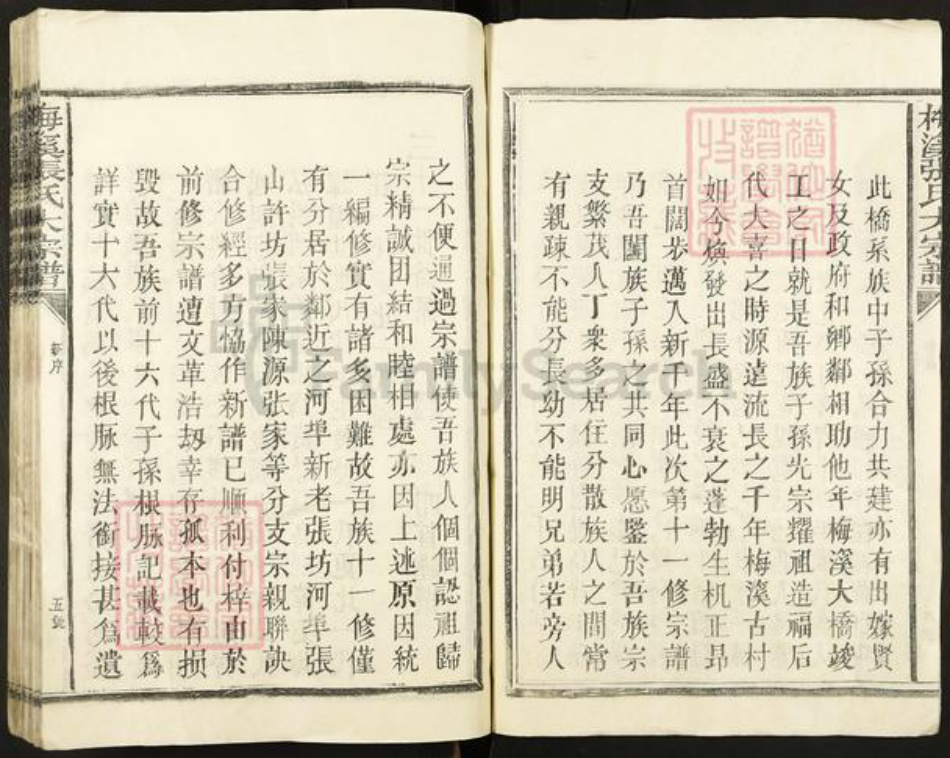 梅溪張氏大宗譜
此橋系族中子孫合力共建亦有出嫁賢
女及政府和鄉鄰相助他年梅溪大橋竣
工之日就是吾族子孫光宗耀祖造福后
代大喜之時源遠流長之千年梅溪古村
如今煥發出長盛不衰之蓬勃生机正昂
首闊步邁入新千年此次第十一修宗譜
乃吾闔族子孫之共同心愿鑒於吾族宗
支繁茂人丁衆多居住分散族人之間常
有親疎不能分長幼不能明兄弟若旁人
之不便通過宗譜使吾族人個個認祖歸
宗精誠团結和睦相處亦因上述原因統
一編修實有諸多困難故吾族十一修僅
有分居於鄰近之河埠新老張坊河埠張
山許坊張家陳源张家等分支宗親聯訣
合修經多方恊作新譜已順利付梓由於
前修宗譜遭文革浩刼幸存孤本也有損
毀故吾族前十六代子孫根脉記載較爲
詳實十六代以後根脉無法銜接甚爲遺
梅溪張氏大宗譜
新序
五
FamilySearch